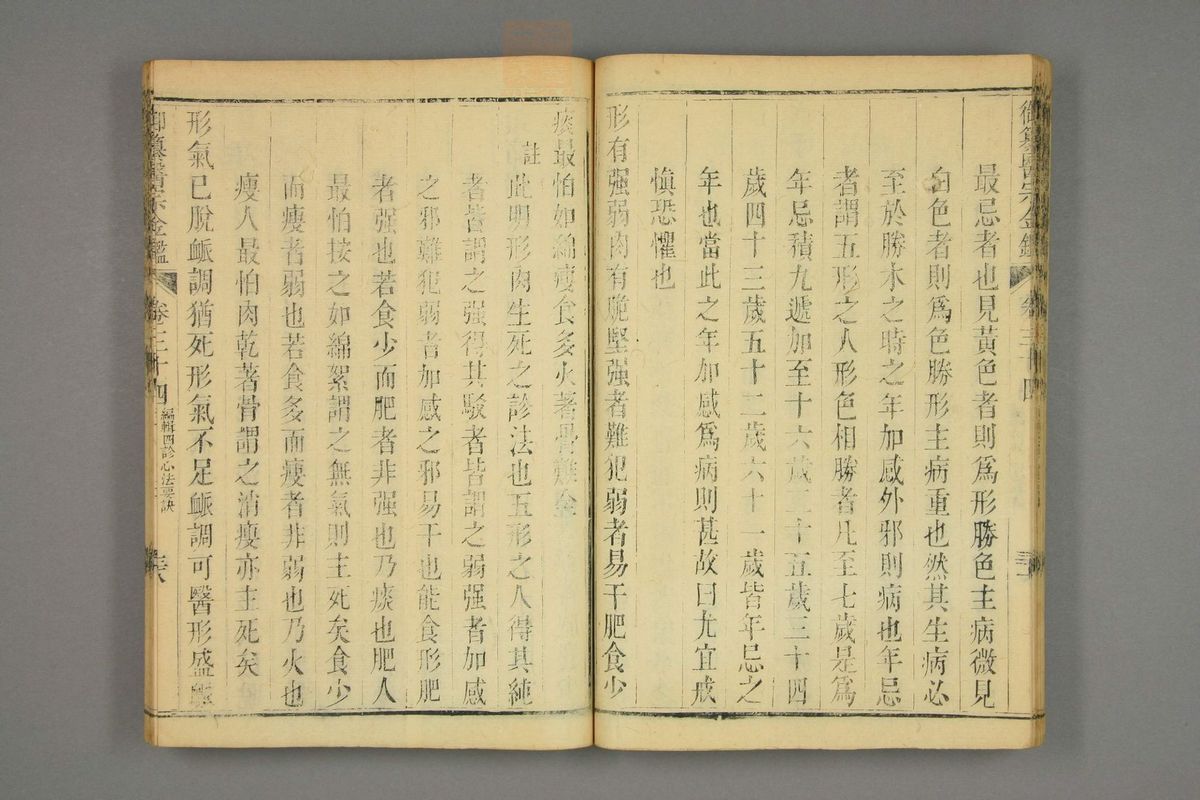 御纂醫宗金鑑 卷三十四
最忌者也見黃色者則爲形勝色主病微見
白色者則爲色勝形主病重也然其生病必
至於勝木之時之年加感外邪則病也年忌
者謂五形之人形色相勝者凡至七歲是爲
年忌積九遞加至十六歲二十五歲三十四
歲四十三歲五十二歲六十一歲皆年忌之
年也當此之年加感爲病則甚故曰尤宜戒
愼恐懼也
形有强弱肉有脆堅强者難犯弱者易干肥食少
痰最怕如綿瘦食多火著骨難全
註 此明形肉生死之診法也五形之人得其純
者皆謂之强得其駁者皆謂之弱强者加感
之邪難犯弱者加感之邪易干也能食形肥
者强也若食少而肥者非强也乃痰也肥人
最怕按之如綿絮謂之無氣則主死矣食少
而瘦者弱也若食多而瘦者非弱也乃火也
瘦人最怕肉乾著骨謂之消瘦亦主死矣
形氣已脫䘑調猶死形氣不足䘑調可醫形盛䘑
御纂醫宗金鑑 卷三十四 編輯四診心法要訣